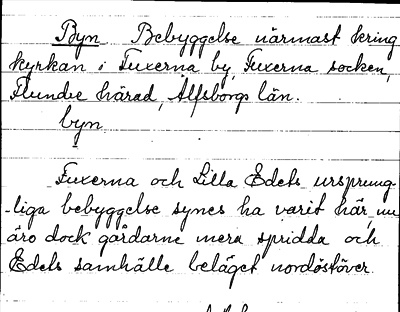 Byn Bebyggelse närmast kring
kyrkan i Fuxerna by, Fuxerna socken,
Flundre härad, Älfsborgs län.
byn
Fuxerna och Lilla Edets ursprung-
-liga bebyggelse synes ha varit här, nu
äro dock gårdarne mera spridda och
Edets samhälle beläget nordöstöver.